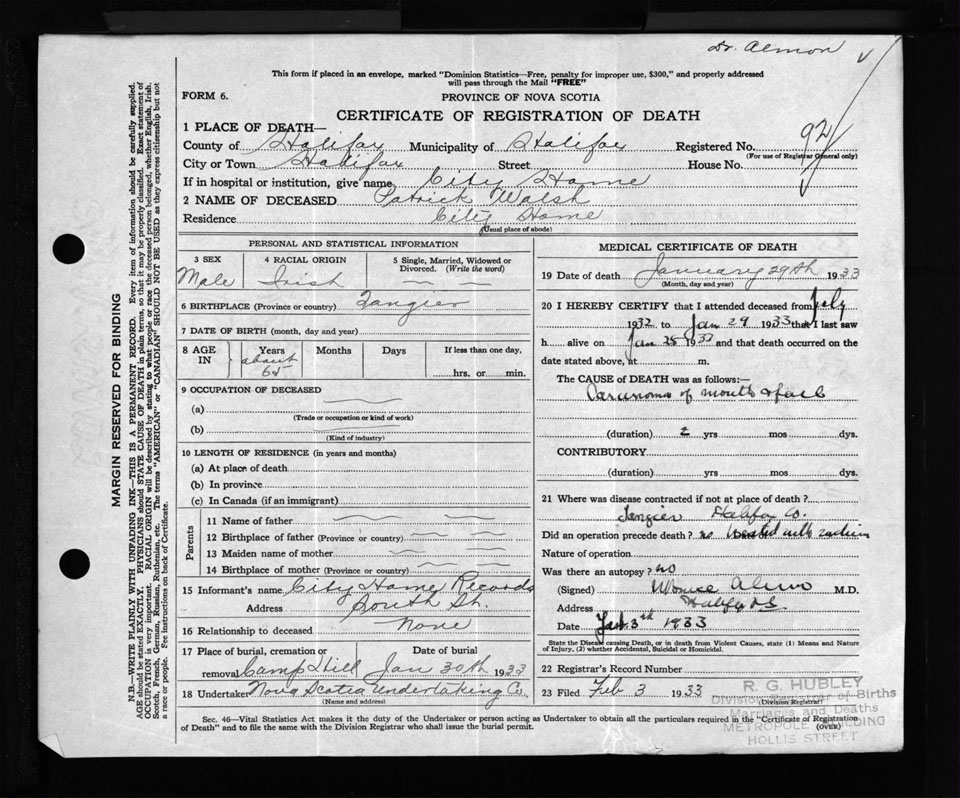 Dr. Almon
This form if placed in an envelope, marked "Dominion Statistics—Free, penalty for improper use, $300," and properly addressed
will pass through the Mail "FREE"
FORM 6.
PROVINCE OF NOVA SCOTIA
CERTIFICATE OF REGISTRATION OF DEATH
1 PLACE OF DEATH—
County of Halifax Municipality of Halifax Registered No. 92
(For use of Registrar General only)
City or Town Halifax Street House No.
If in hospital or institution, give name City Home
2 NAME OF DECEASED Patrick Walsh
Residence City Home
(Usual place of abode)
PERSONAL AND STATISTICAL INFORMATION
3 SEX
Male
4 RACIAL ORIGIN
Irish
5 Single, Married, Widowed or
Divorced. (Write the word)
6 BIRTHPLACE (Province or country) Tangier
7 DATE OF BIRTH (month, day and year)
8 AGE IN
Years Months Days If less than one day,
about
65
hrs. or min.
9 OCCUPATION OF DECEASED
(a)
(Trade or occupation or kind of work)
(b)
(Kind of industry)
10 LENGTH OF RESIDENCE (in years and months)
(a) At place of death
(b) In province
(c) In Canada (if an immigrant)
Parents
11 Name of father
12 Birthplace of father (Province or country)
13 Maiden name of mother
14 Birthplace of mother (Province or country)
15 Informant's name City Home Records
Address South St.
16 Relationship to deceased None
17 Place of burial, cremation or Date of burial
removal Camp Hill Jan 30th 1933
18 Undertaker Nova Scotia Undertaking Co.
(Name and address)
MEDICAL CERTIFICATE OF DEATH
19 Date of death January 29th 1933
(Month, day and year)
20 I HEREBY CERTIFY that I attended deceased from July
1932 to Jan 29 1933 that I last saw
h alive on Jan 28 1933 and that death occurred on the
date stated above, at m.
The CAUSE OF DEATH was as follows:—
Carcinoma of mouth & face
(duration) 2 yrs mos dys.
CONTRIBUTORY
(duration) yrs mos dys.
21 Where was disease contracted if not at place of death?
Tangier Halifax Co.
Did an operation precede death? no treated with radium
Nature of operation
Was there an autopsy? no
(Signed) Almon M.D.
Address Halifax NS
Date Feb. 3rd 1933
State the Disease causing Death, or in death from Violent Causes, state (1) Means and Nature
of Injury, (2) whether Accidental, Suicidal or Homicidal.
22 Registrar's Record Number
23 Filed Feb 3 1933
(Division Registrar)
R. G. HUBLEY
Division Registrar of Births
Marriages and Deaths
METROPOLE BUILDING
HOLLIS STREET
Sec. 46—Vital Statistics Act makes it the duty of the Undertaker or person acting as Undertaker to obtain all the particulars required in the "Certificate of Registration
of Death" and to file the same with the Division Registrar who shall issue the burial permit.
(OVER)
MARGIN RESERVED FOR BINDING
N.B.—WRITE PLAINLY WITH UNFADING INK—THIS IS A PERMANENT RECORD. Every item of information should be carefully supplied.
AGE should be stated EXACTLY. PHYSICIANS should STATE CAUSE OF DEATH in plain terms, so that it may be properly classified. Exact statement of
OCCUPATION is very important. RACIAL ORIGIN will be described by stating to what people or race the deceased person belonged, whether English, Irish,
Scotch, French, German, Russian, Ruthenian, etc. The terms "AMERICAN" or "CANADIAN" SHOULD NOT BE USED as they express citizenship but not
a race or people. Fee instructions on back of Certificate.